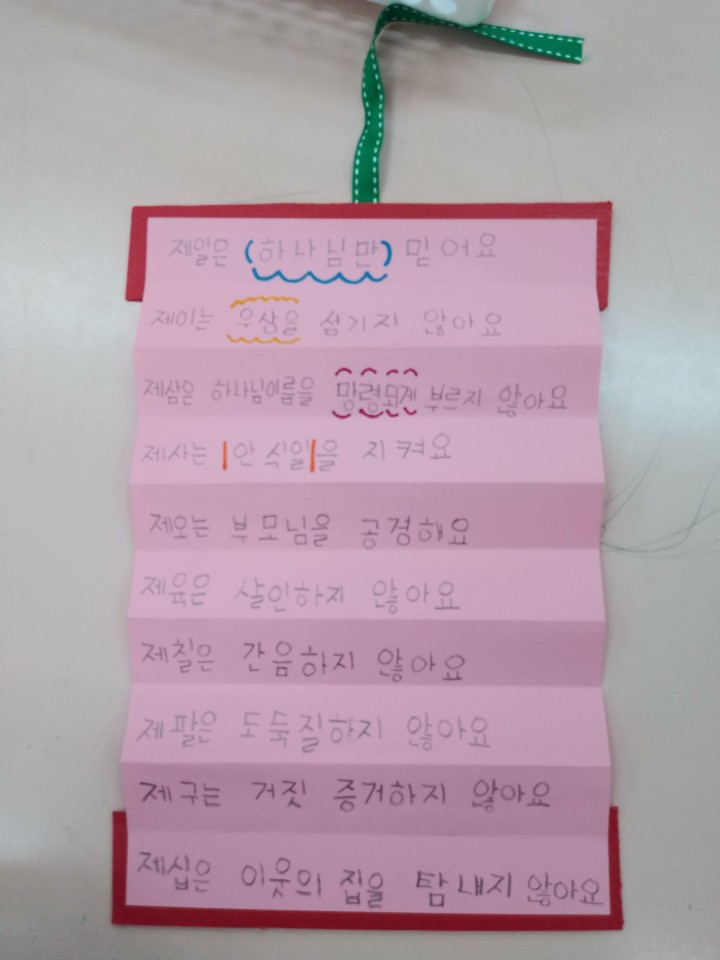 제일은 (하나님만) 믿어요
제이는 우상을 섬기지 않아요
제삼은 하나님이름을 망령되게 부르지 않아요
제사는 안식일을 지켜요
제오는 부모님을 공경해요
제육은 살인하지 않아요
제칠은 간음하지 않아요
제팔은 도둑질하지 않아요
제구는 거짓 증거하지 않아요
제십은 이웃의 집을 탐내지 않아요